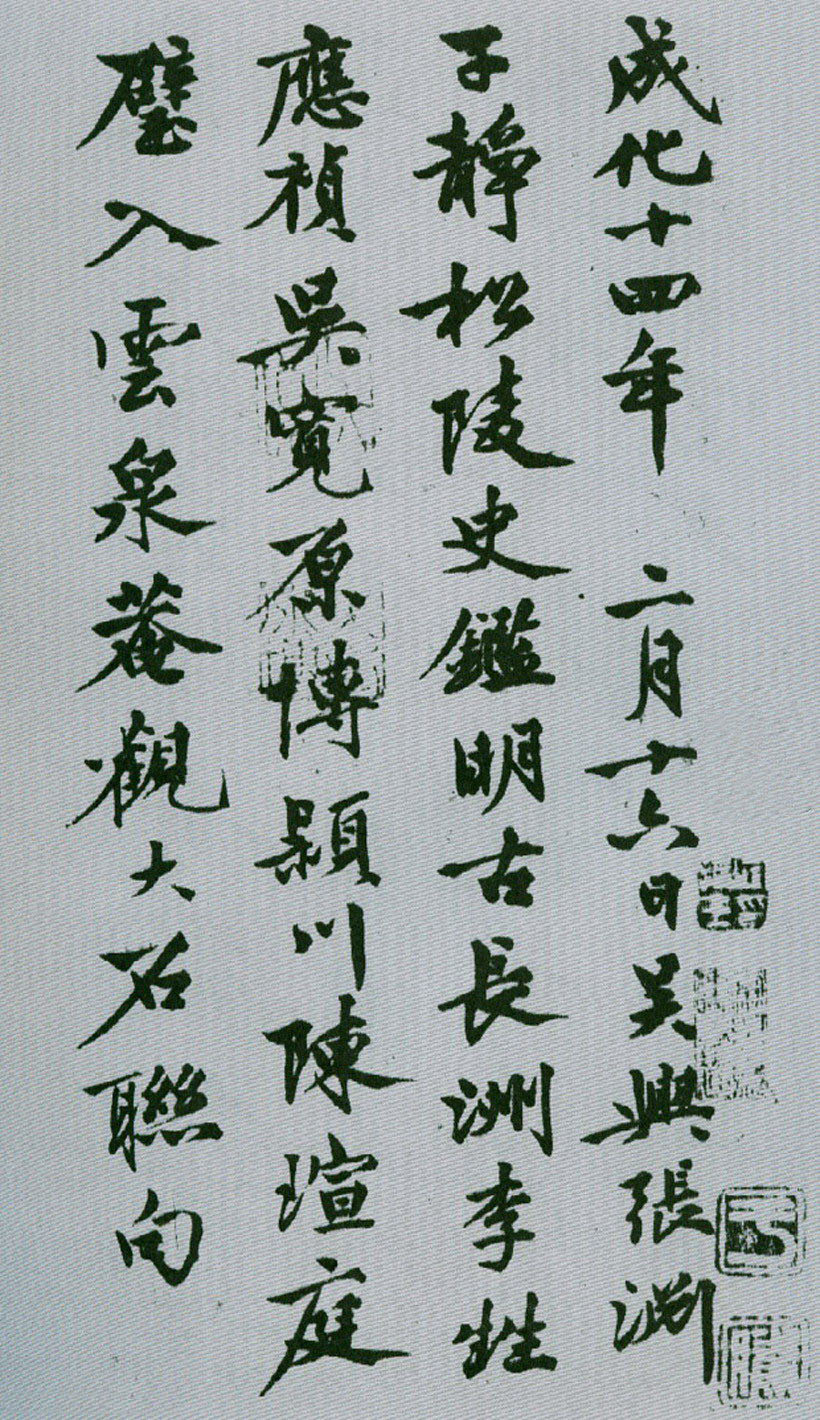 成化十四年二月十六日吴興張淵
子靜松陵史鑑明古長洲李甡
應禎吳寬原博潁川陳瑄庭
璧入雲泉菴觀大石聯句